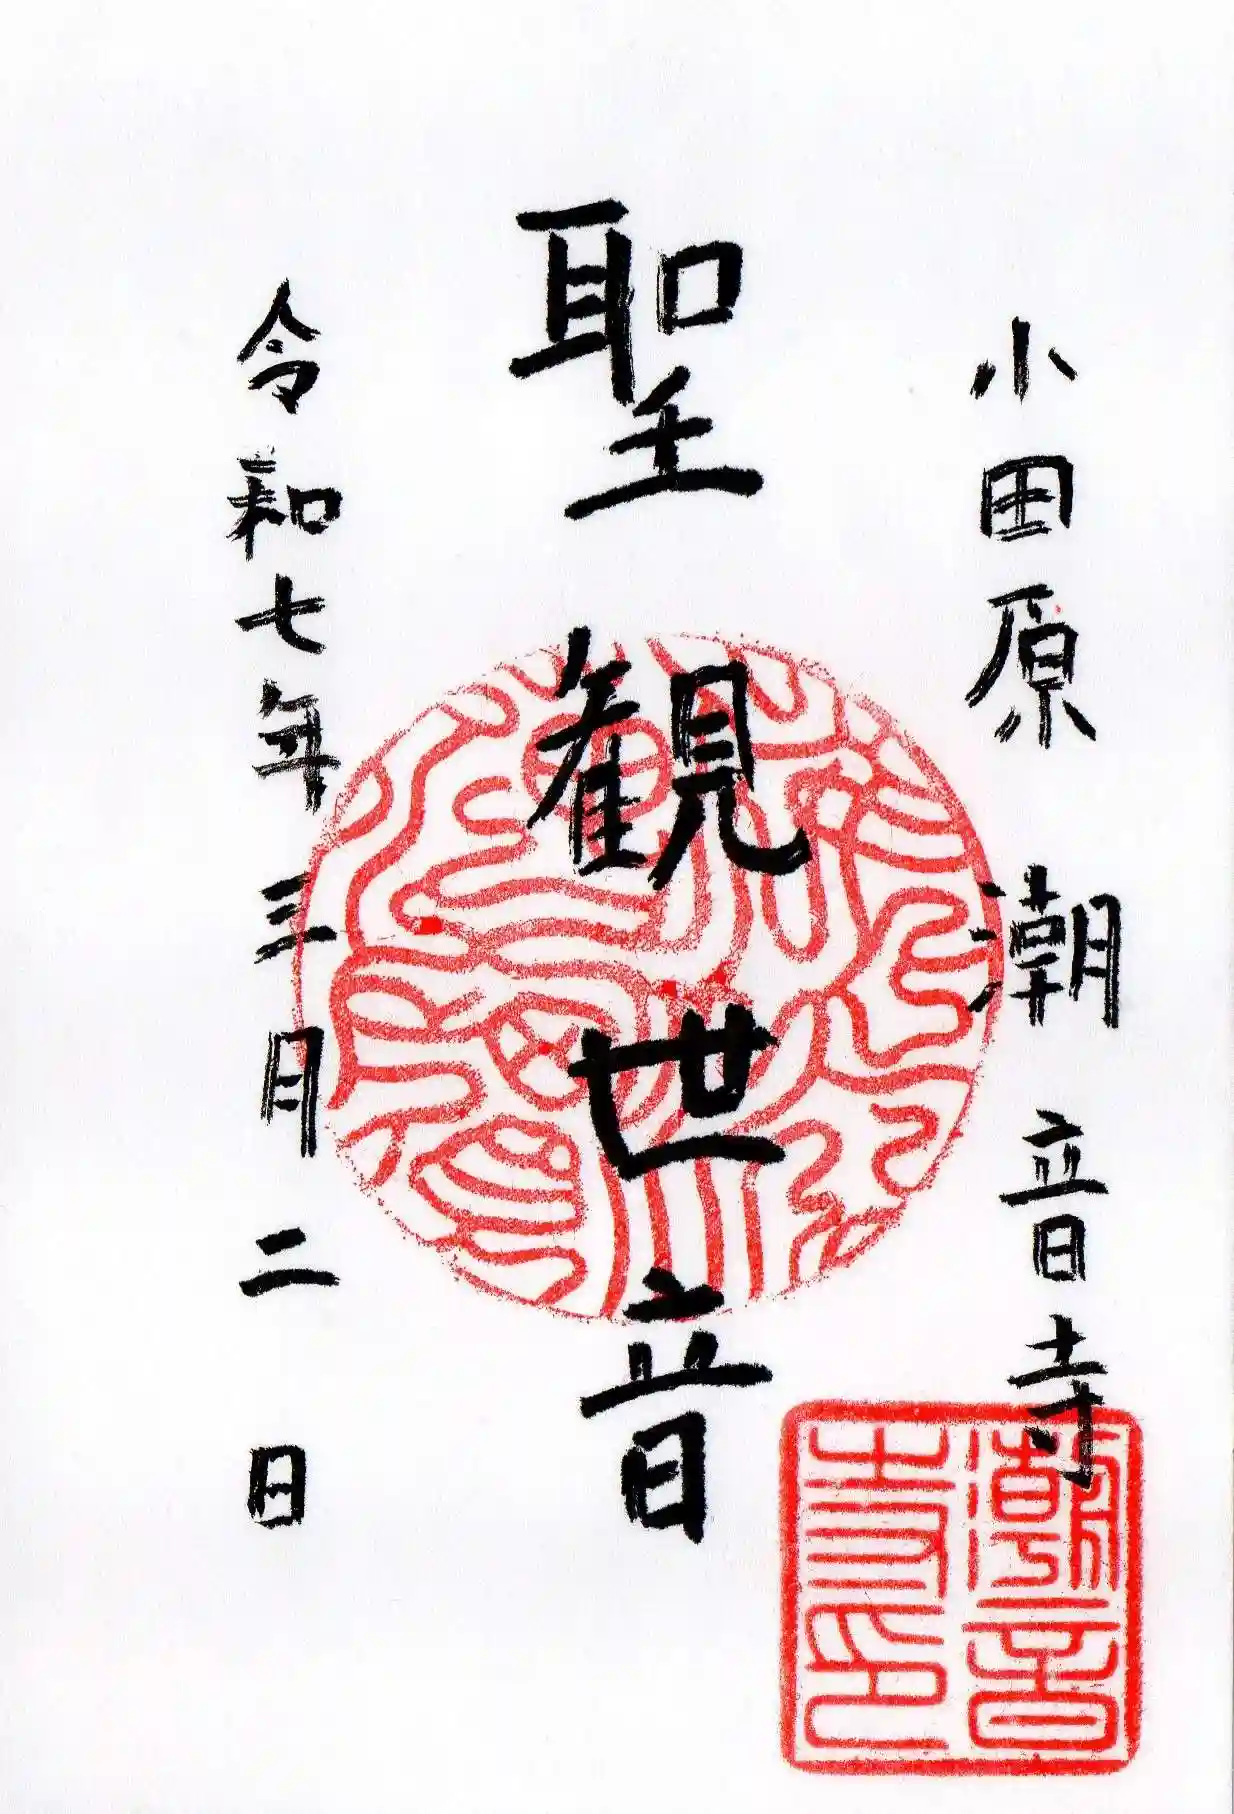 小田原 潮音寺
聖観世音
令和七年三月二日
潮音
寺印